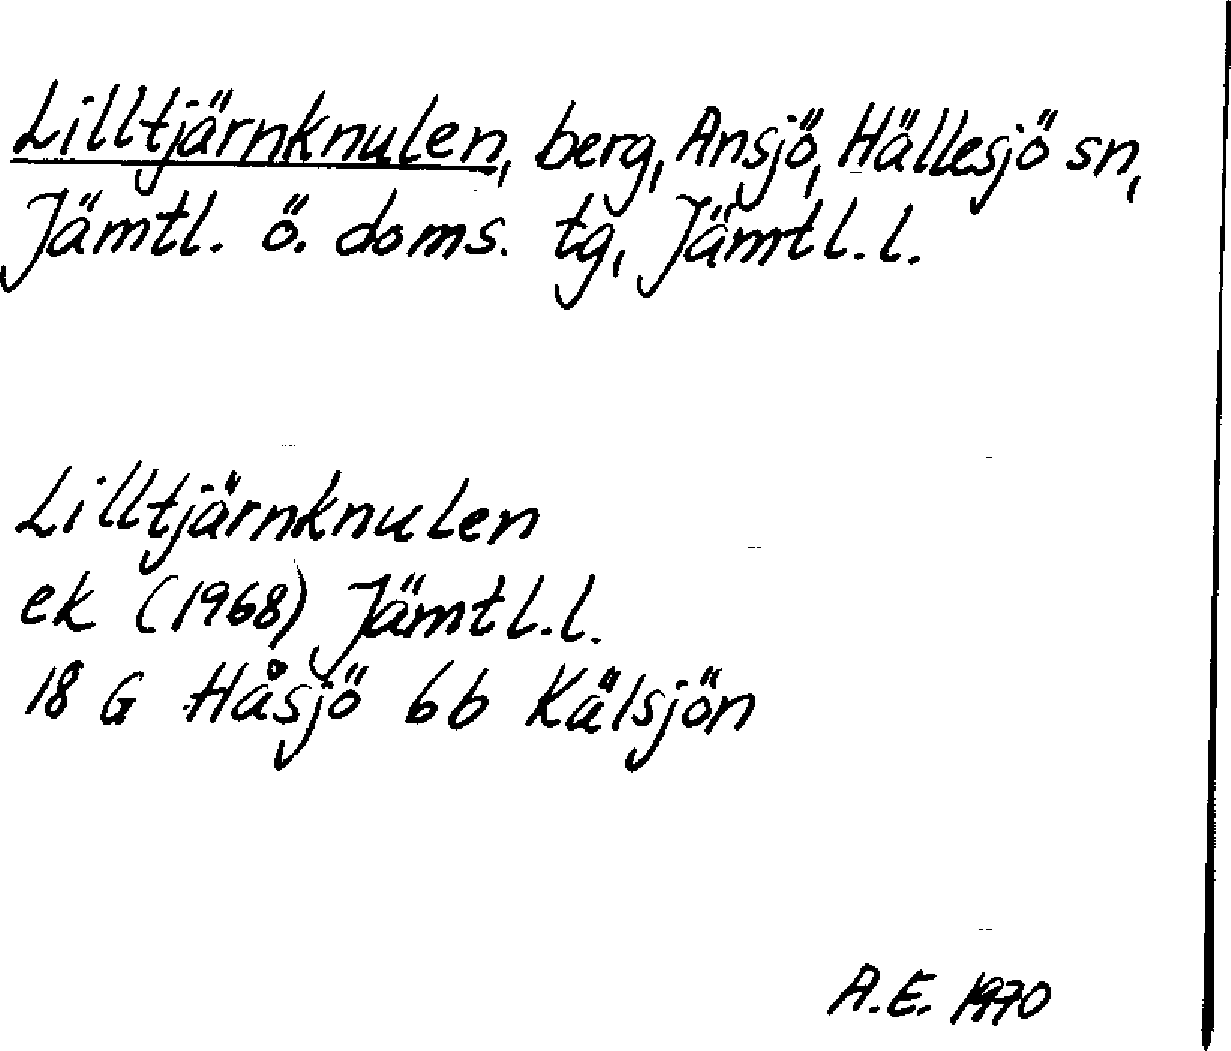 Lilltjärnknulen, berg, Ansjö, Hällesjö sn,
Jämtl. ö. doms. tg, Jämtl. l.
Lilltjärnknulen
ek (1968) Jämtl. l.
18 G Håsjö 6b Kälsjön
A.E. 1970